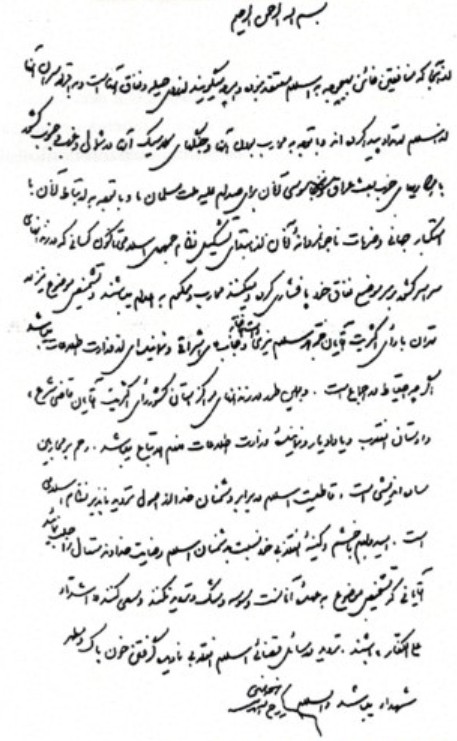 بسم الله الرحمن الرحیم
از آنجا که منافقین خائن به هیچ وجه به اسلام معتقد نبوده و هر چه میگویند از روی حیله و نفاق آنهاست و به اقرار سران آنها
از اسلام ارتداد پیدا کرده‌اند، و با توجه به محارب بودن آنها و جنگهای کلاسیک آنها در شمال و غرب و جنوب کشور
با همکاریهای حزب بعث عراق و نیز جاسوسی آنان برای صدام علیه ملت مسلمان ما، و با توجه به ارتباط آنان با
استکبار جهانی و ضربات ناجوانمردانهٔ آنان از ابتدای تشکیل نظام جمهوری اسلامی تا کنون، کسانی که در زندانهای
سراسر کشور بر سر موضع نفاق خود پافشاری کرده و میکنند محارب و محکوم به اعدام میباشند و تشخیص موضوع نیز در
تهران با رأی اکثریت آقایان حجة الاسلام نیری دامت افاضاته و جناب آقای اشراقی و نماینده‌ای از وزارت اطلاعات میباشد
اگر چه احتیاط در اجماع است، و همین طور در زندانهای مراکز استان کشور رأی اکثریت آقایان قاضی شرع،
دادستان انقلاب و یا دادیار و نمایندهٔ وزارت اطلاعات لازم الاتباع میباشد، رحم بر محاربین
ساده‌اندیشی است، قاطعیت اسلام در برابر دشمنان خدا از اصول تردید ناپذیر نظام اسلامی
است، امیدوارم با خشم و کینهٔ انقلابی خود نسبت به دشمنان اسلام رضایت خداوند متعال را جلب نمائید
آقایانی که تشخیص موضوع به عهدهٔ آنان است وسوسه و شک و تردید نکنند و سعی کنند «اشداء
علی الکفار» باشند. تردید در مسائل قضائی اسلام انقلابی نادیده گرفتن خون پاک و مطهر
شهداء میباشد والسلام
روح الله الموسوی الخمینی